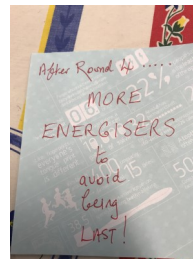 After Round 4.....
MORE
ENERGISERS
to
avoid
being
LAST!